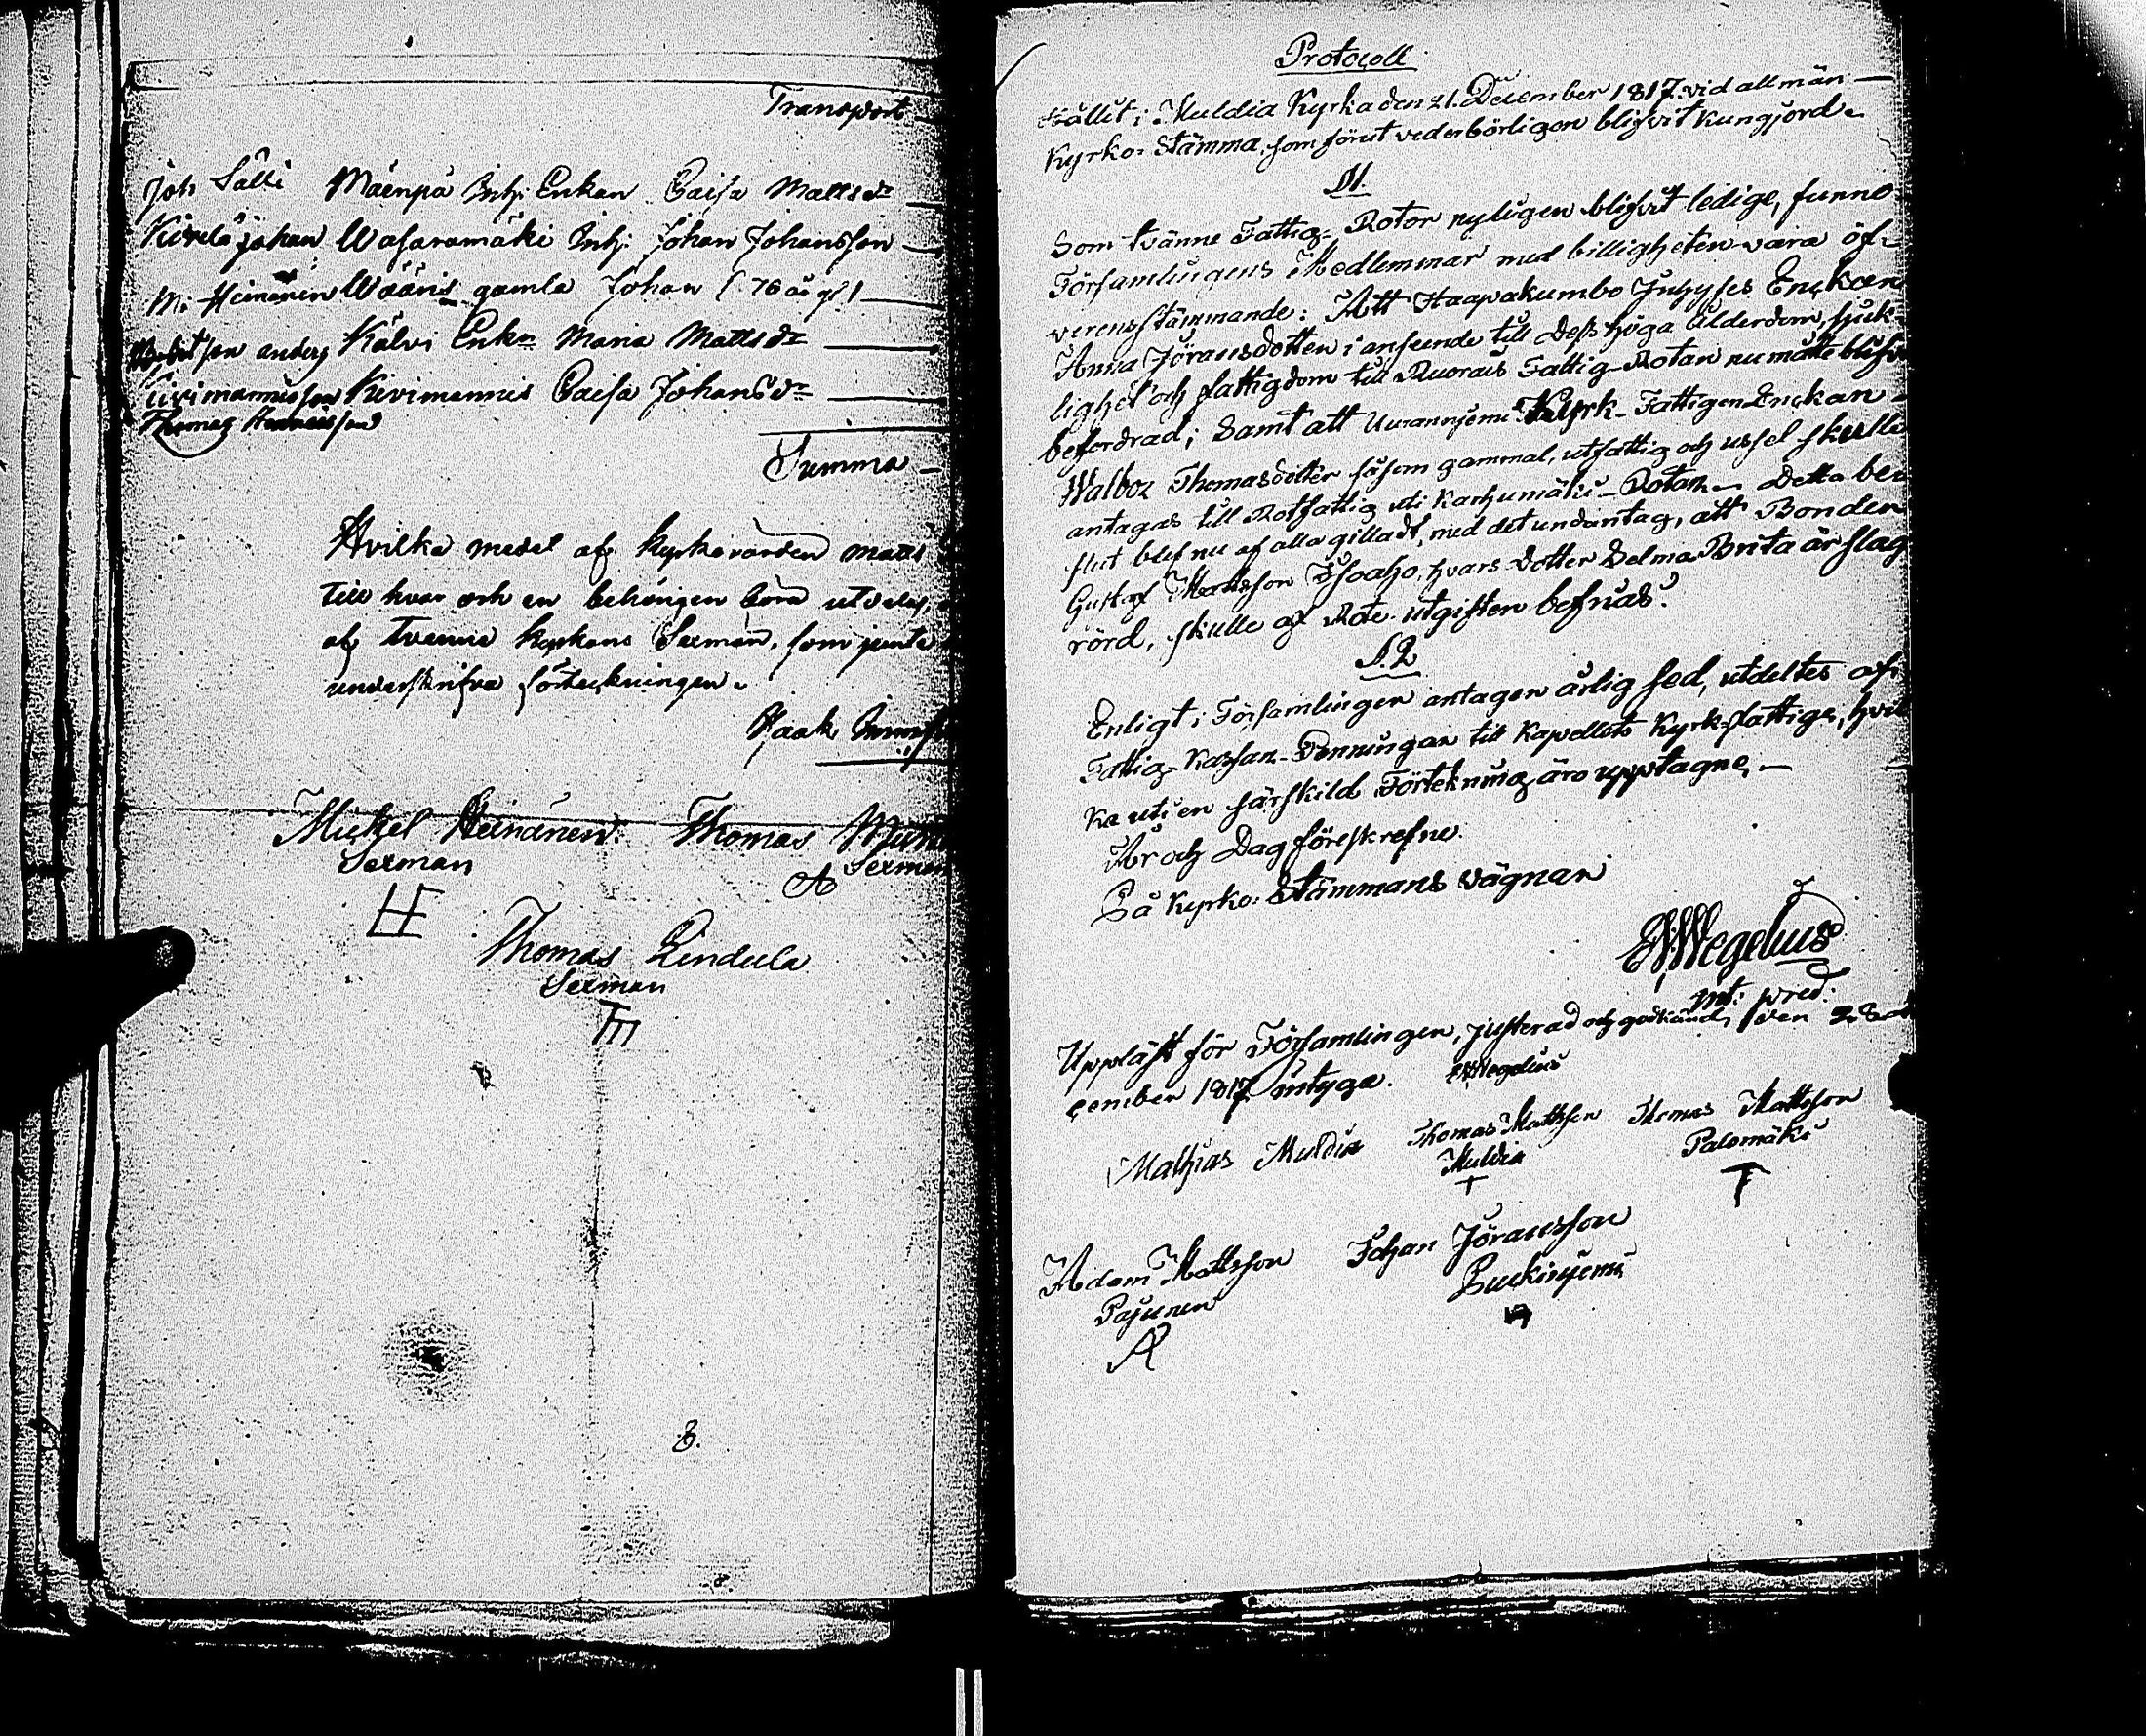 Transport
Joh Sälli Mäenpä Inh. Enkan Caisa Mattsdr
Johan Wasaramäki Inh. Johan Johansson
M. Heinänen Wääris gamla Johan (76 år gl)
anders Kälvi Enkn Maria Mattsdr
Kivimannis Caisa Johansdr
Thomas
Summa
Hvilka medel af Kyrkovärden Matts
till hvar och en behörigen böra utdelas,
af tvenne Kyrkans Sexmän, som jemte
underskrifva förteckningen.
Mickel Heinänen Thomas
Sexman Sexman
H A
Thomas Lindula
Sexman
TH
8.
Protocoll
Hållit i Muldia Kyrka den 21. December 1817. vid allmän
Kyrko-Stämma, som förut vederbörligen blifvit kungjord.
§1.
Som tvänne Fattig-Rotor nyligen blifvit ledige, funno
Församlingens Medlemmar med billigheten vara öf-
verensstämmande: Att Haapakumbo Enckan
Anna Jöransdotter i anseende till dess höga ålderdom, sjuk-
lighet och fattigdom till Ruorais Fattig-Rotan nu måtte blifva
befordrad; Samt att Kyrk-Fattigen Enckan
Walbor Thomasdotter såsom gammal, utfattig och ussel skulle
antagas till Rotfattig uti Karhumäki-Rotan. Detta be-
slut blef nu af alla gilladt, med det undantag, att Bonden
Gustaf Mattsson Isoaho, hvars Dotter Selma Brita är slag-
rörd, skulle af Rote-utgiften befrias.
§.2
Enligt i Församlingen antagen årlig sed, utdeltes af
Fattig-Kassan-Penningar till Kapellets Kyrk-fattige, hvil-
ka uti en särskild Förtekning äro upptagne.
År och Dag föreskrefne.
På Kyrko-Stämmans vägnar
Wegelius
Upplåst för Församlingen, justerad och godkänd, den De-
cember 1817 intyga. Wegelius
Mathias Muldia Thomas Mattsson Thomas Mattsson
Muldia Palomäki
T
Adam Mattsson Johan Jöransson
Pajunen